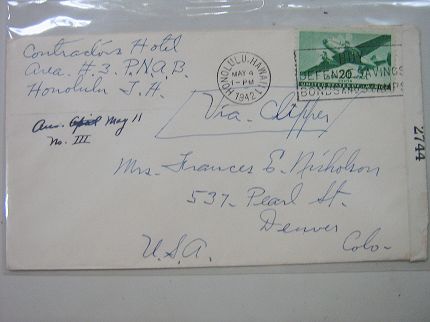 Contractors Hotel
Area. H.3. P.N.A.B.
Honolulu T.H.
HONOLULU, HAWAII
MAY 4
1-PM
1942
DEFENSE SAVINGS
BONDS AND STAMPS
20
Via. Clipper
Ans. April May 11
No. III
Mrs. Frances E. Nicholson
537. Pearl St.
Denver
Colo-
U.S.A.
2744